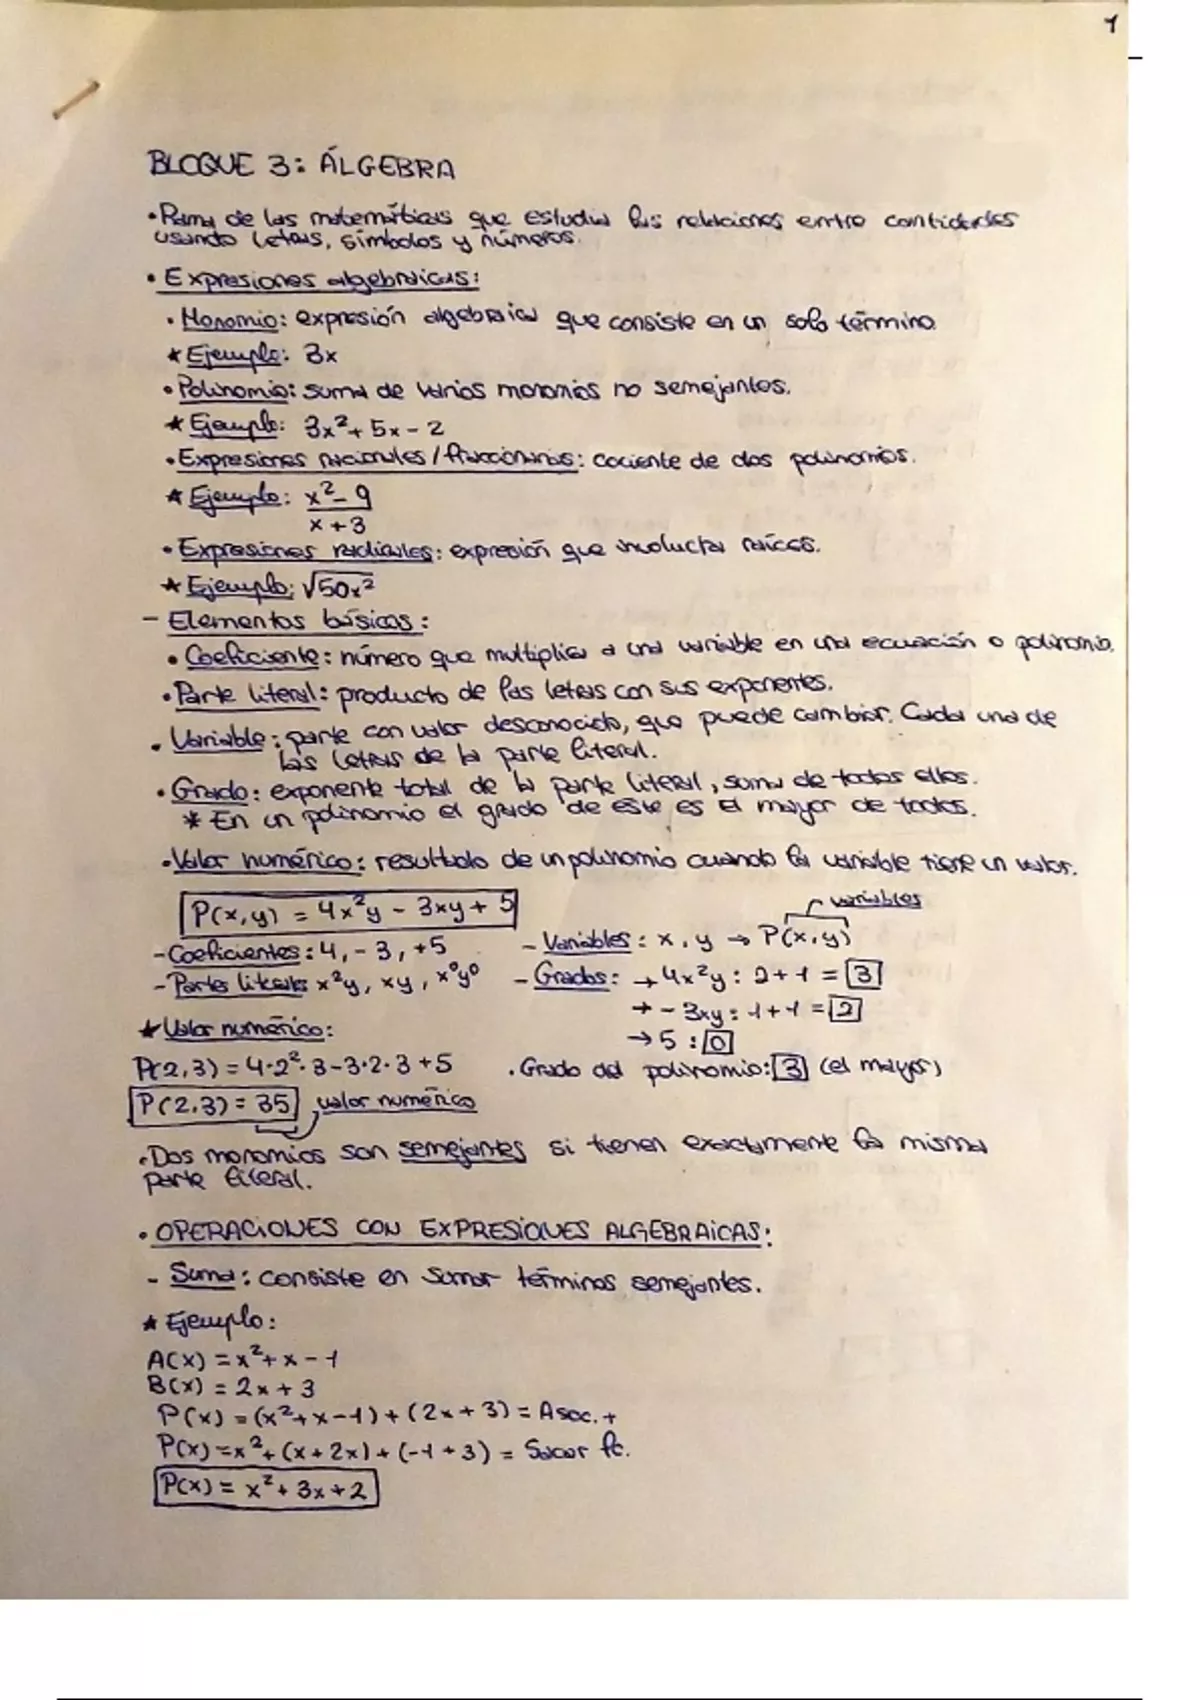 1
BLOQUE 3: ÁLGEBRA
• Rama de las matemáticas que estudia las relaciones entre cantidades
usando letras, símbolos y números.
• Expresiones algebraicas:
• Monomio: expresión algebraica que consiste en un solo término.
* Ejemplo: 3x
• Polinomio: suma de varios monomios no semejantes.
* Ejemplo: 3x² + 5x - 2
• Expresiones racionales / fraccionarias: cociente de dos polinomios.
* Ejemplo: x² - 9
x + 3
• Expresiones radicales: expresión que involucra raíces.
* Ejemplo: √50x²
- Elementos básicos:
• Coeficiente: número que multiplica a una variable en una ecuación o polinomio.
• Parte literal: producto de las letras con sus exponentes.
• Variable: parte con valor desconocido, que puede cambiar. Cada una de
las letras de la parte literal.
• Grado: exponente total de la parte literal, suma de todos ellos.
* En un polinomio el grado de este es el mayor de todos.
• Valor numérico: resultado de un polinomio cuando la variable tiene un valor.
P(x,y) = 4x²y - 3xy + 5
variables
- Coeficientes: 4, -3, +5
- Variables: x, y → P(x,y)
- Partes literales x²y, xy, x⁰y⁰
- Grados: → 4x²y: 2+1 = 3
→ - 3xy: 1+1 = 2
* Valor numérico:
→ 5: 0
P(2,3) = 4·2²·3-3·2·3+5
. Grado del polinomio: 3 (el mayor)
P(2,3) = 35 valor numérico
• Dos monomios son semejantes si tienen exactamente la misma
parte literal.
• OPERACIONES CON EXPRESIONES ALGEBRAICAS:
- Suma: consiste en sumar términos semejantes.
* Ejemplo:
A(x) = x² + x - 1
B(x) = 2x + 3
P(x) = (x² + x - 1) + (2x + 3) = Asoc. +
P(x) = x² + (x + 2x) + (-1 + 3) = Sacar fc.
P(x) = x² + 3x + 2